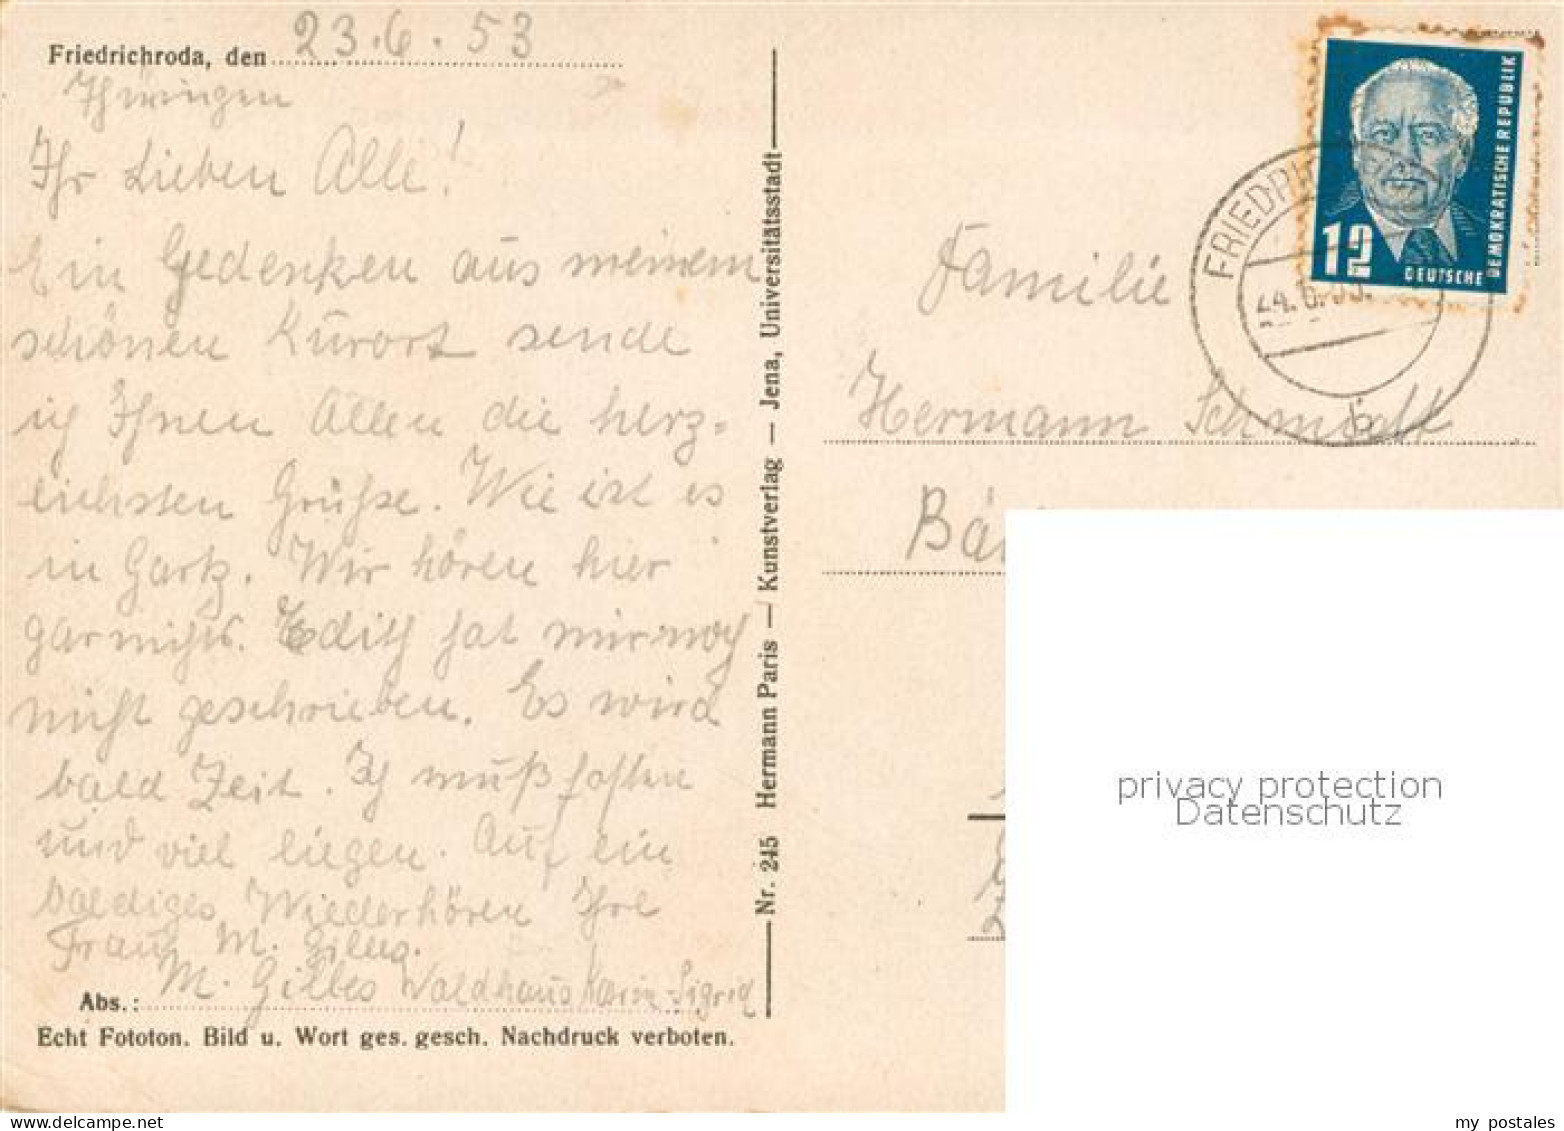 Friedrichroda, den 23.6.53
Thüringen
Ihr Lieben Alle!
Ein Gedenken aus meinem
schönen Kurort sende
ich Ihnen Allen die herz-
lichsten Grüße. Wie ist es
in Gartz. Wir hören hier
garnichts. Edith hat mir noch
nicht geschrieben. Es wird
bald Zeit. Ich muß fasten
und viel liegen. Auf ein
baldiges Wiederhören Ihre
Frau M. Gilles.
Abs.: M. Gilles Waldhaus Karin-Sigrid
Echt Fototon. Bild u. Wort ges. gesch. Nachdruck verboten.
Nr. 245 Hermann Paris — Kunstverlag — Jena, Universitätsstadt
12
DEUTSCHE
DEMOKRATISCHE REPUBLIK
FRIEDRI
24.6.53.
b
Familie
Hermann Schmidt
Bä
privacy protection
Datenschutz
my postales